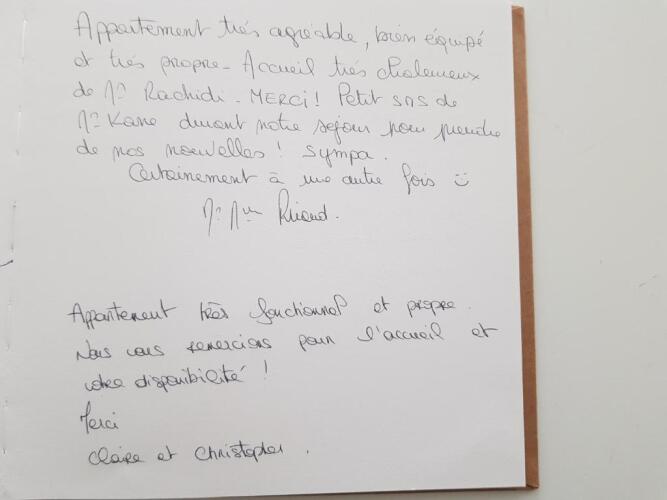 Appartement très agréable, bien équipé
et très propre - Accueil très chaleureux
de Mr Rachidi - MERCI! Petit sms de
Mr Kane durant notre séjour pour prendre
de nos nouvelles! Sympa.
Certainement à une autre fois
Mr Mme
Appartement très fonctionnel et propre.
Nous vous remercions pour l'accueil et
votre disponibilité!
Merci
Claire et Christopher.